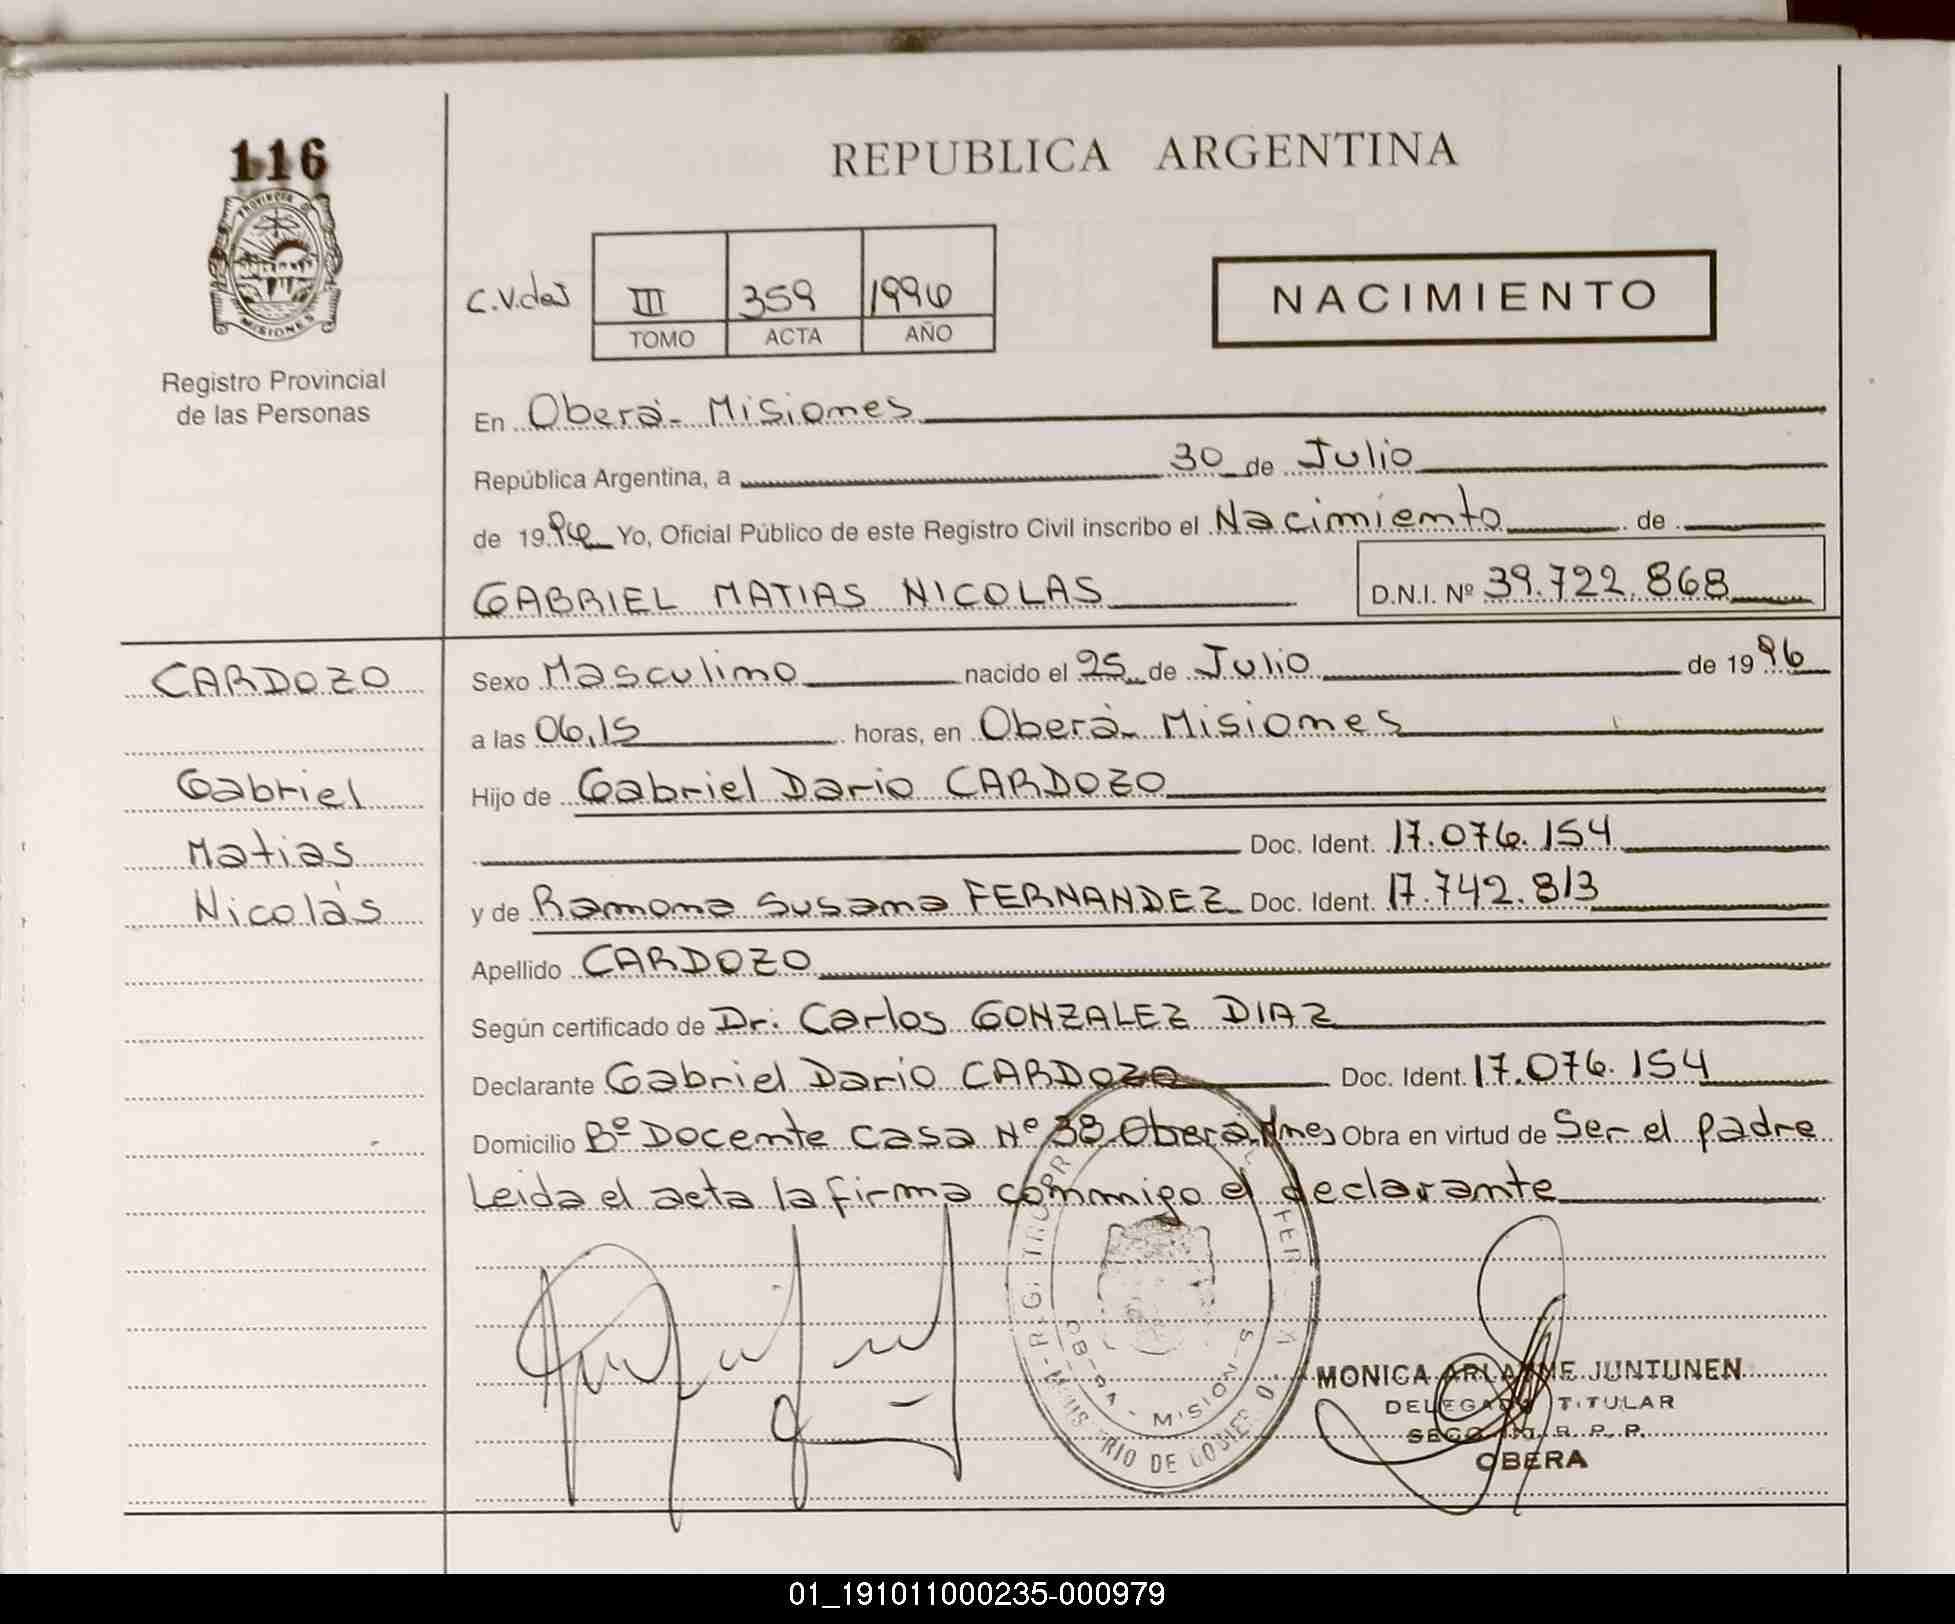 116
REPUBLICA ARGENTINA
PROVINCIA DE
MISIONES
Registro Provincial
de las Personas
III 359 1996
TOMO ACTA AÑO
NACIMIENTO
En Oberá - Misiones
República Argentina, a 30 de Julio
de 1996 Yo, Oficial Público de este Registro Civil inscribo el Nacimiento de
GABRIEL MATIAS NICOLAS D.N.I. Nº 39.722.868
CARDOZO
Gabriel
Matias
Nicolás
Sexo Masculino nacido el 25 de Julio de 1996
a las 06,15 horas, en Oberá - Misiones
Hijo de Gabriel Dario CARDOZO
Doc. Ident. 17.076.154
y de Ramona Susana FERNANDEZ Doc. Ident. 17.742.813
Apellido CARDOZO
Según certificado de Dr. Carlos GONZALEZ DIAZ
Declarante Gabriel Dario CARDOZO Doc. Ident. 17.076.154
Domicilio Bº Docente Casa Nº 38 Oberá Mnes Obra en virtud de Ser el padre
Leida el acta la firma conmigo el declarante
MONICA ARIANNE JUNTUNEN
DELEGADO TITULAR
R. P. P.
OBERA
MISIONES
01_191011000235-000979